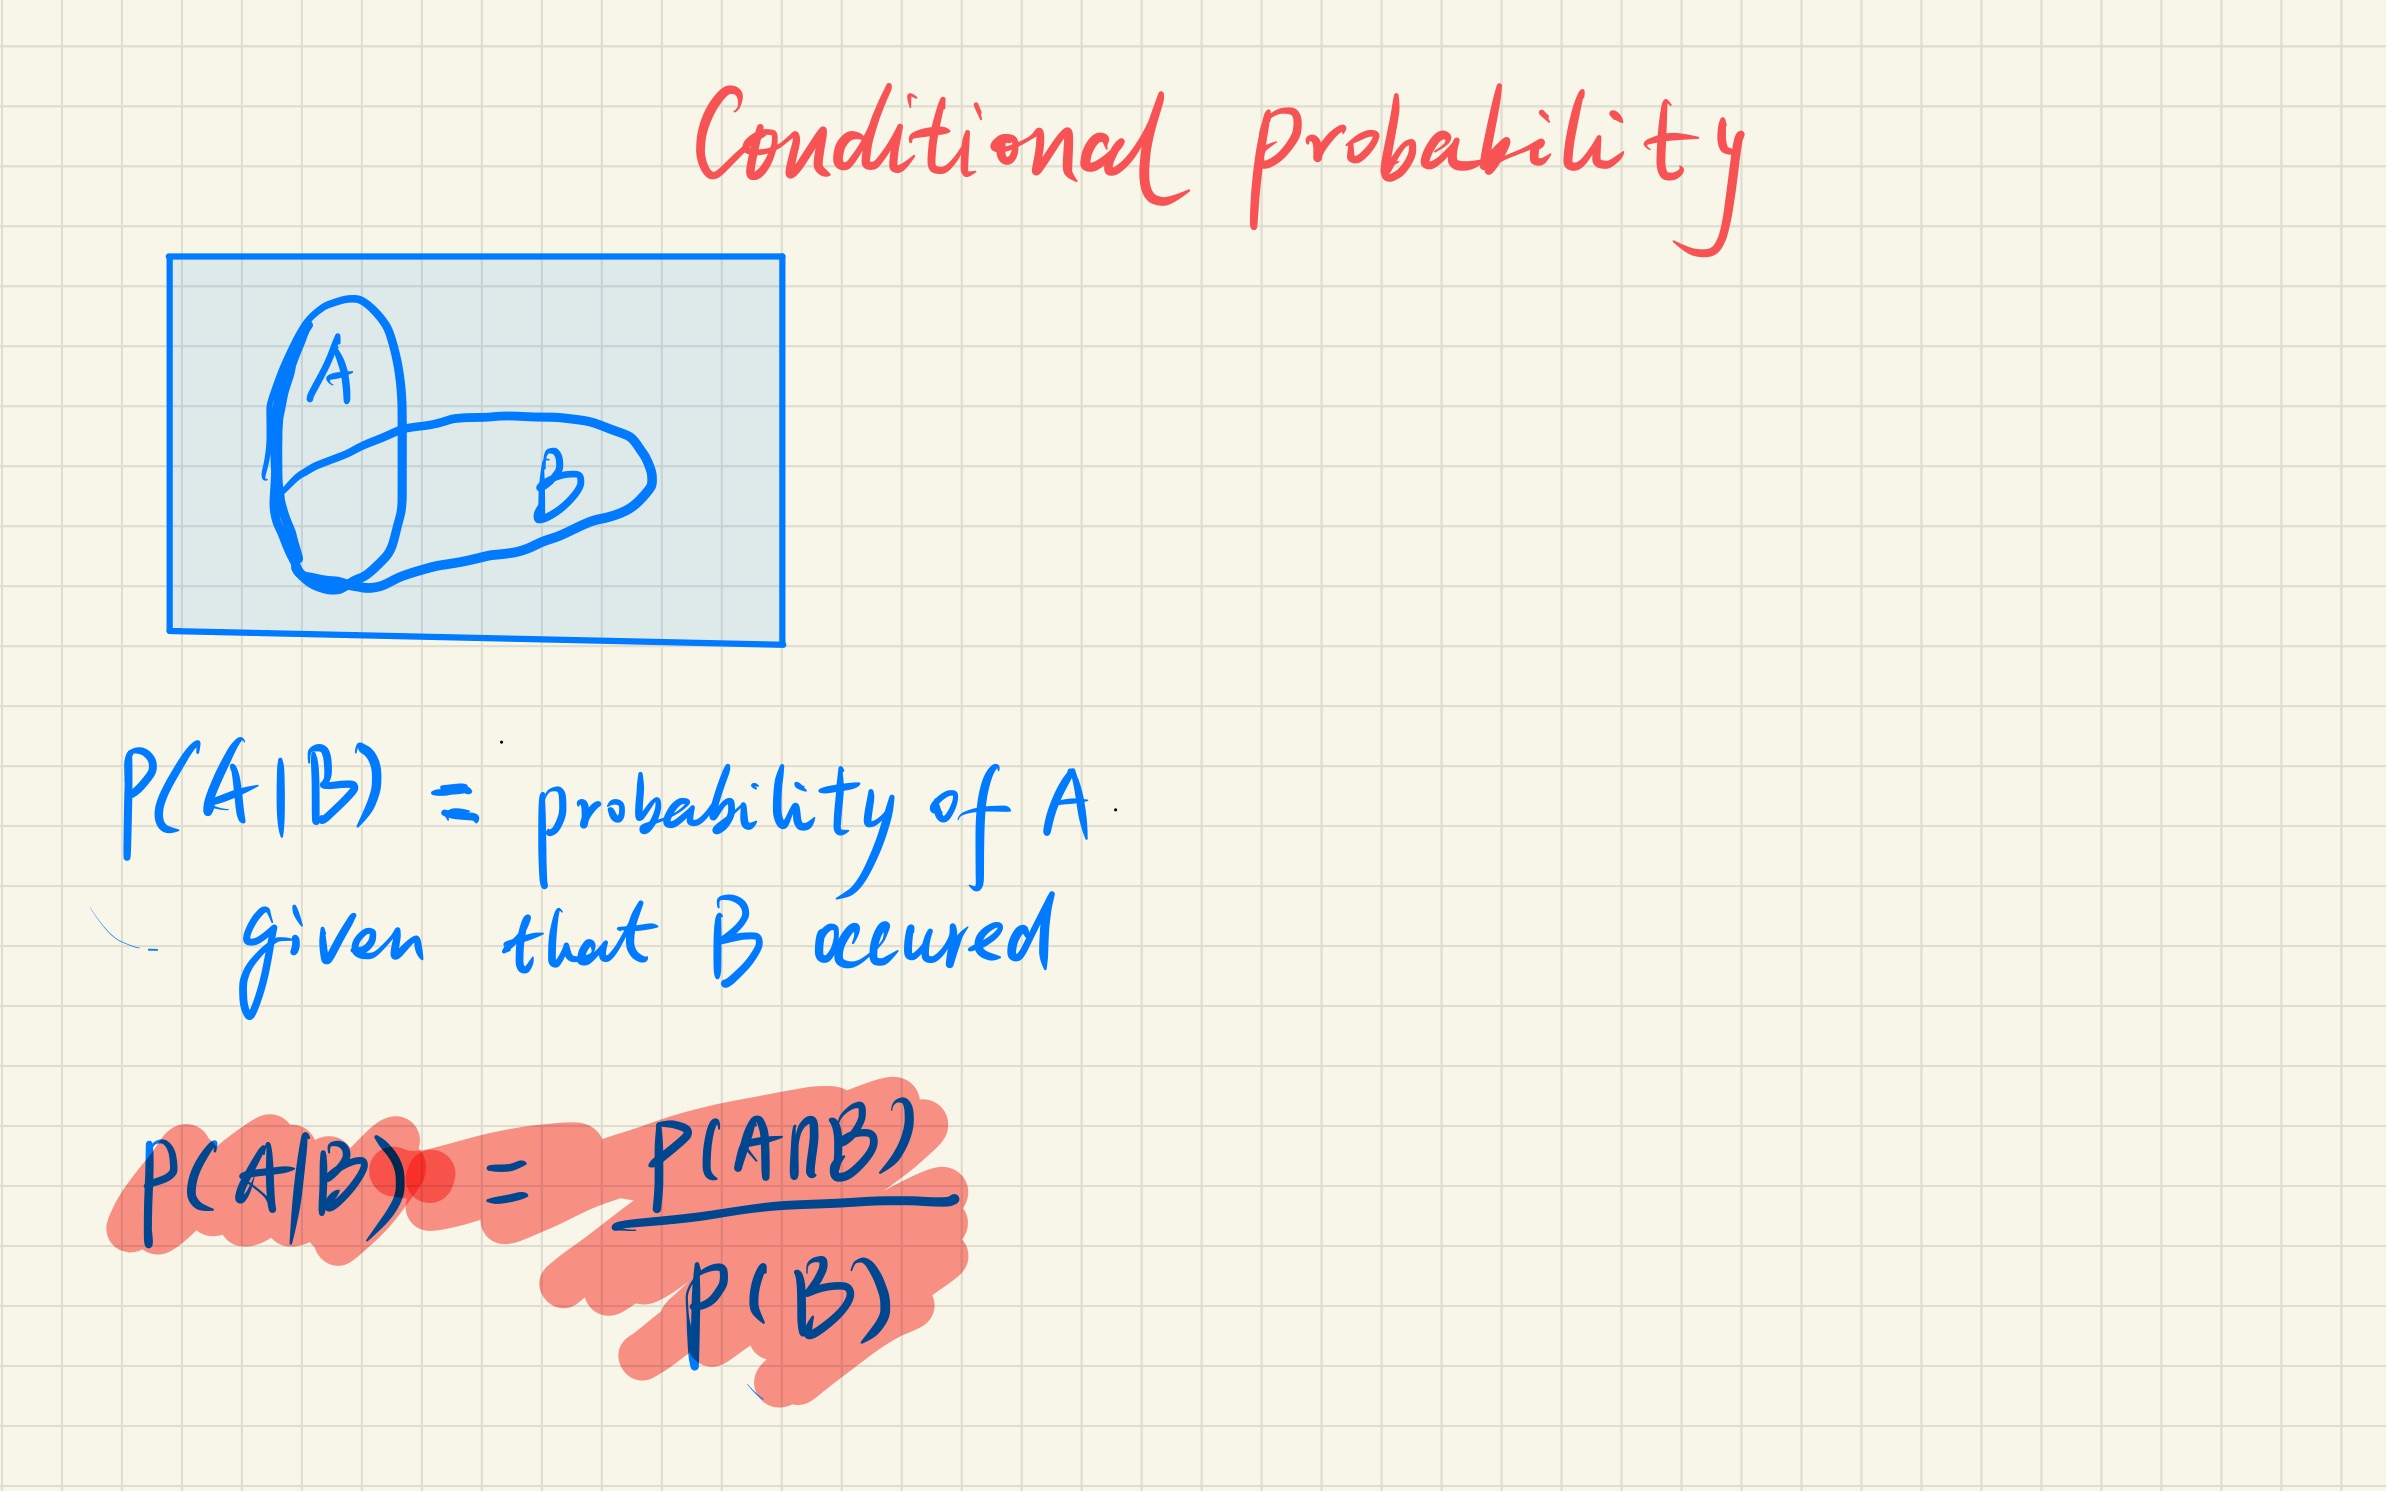 Conditional probability
A
B
P(A|B) = probability of A
given that B occured
P(A|B) = P(A∩B)
P(B)